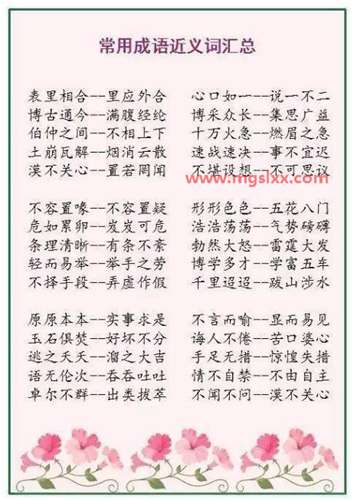 常用成语近义词汇总
表里相合--里应外合 心口如一--说一不二
博古通今--满腹经纶 博采众长--集思广益
伯仲之间--不相上下 十万火急--燃眉之急
土崩瓦解--烟消云散 速战速决--事不宜迟
漠不关心--置若罔闻 不堪设想--不可思议
www.mgslxx.com
不容置喙--不容置疑 形形色色--五花八门
危如累卵--岌岌可危 浩浩荡荡--气势磅礴
条理清晰--有条不紊 勃然大怒--雷霆大发
轻而易举--举手之劳 博学多才--学富五车
不择手段--弄虚作假 千里迢迢--跋山涉水
原原本本--实事求是 不言而喻--显而易见
玉石俱焚--好坏不分 诲人不倦--苦口婆心
逃之夭夭--溜之大吉 手足无措--惊惶失措
语无伦次--吞吞吐吐 情不自禁--不由自主
卓尔不群--出类拔萃 不闻不问--漠不关心